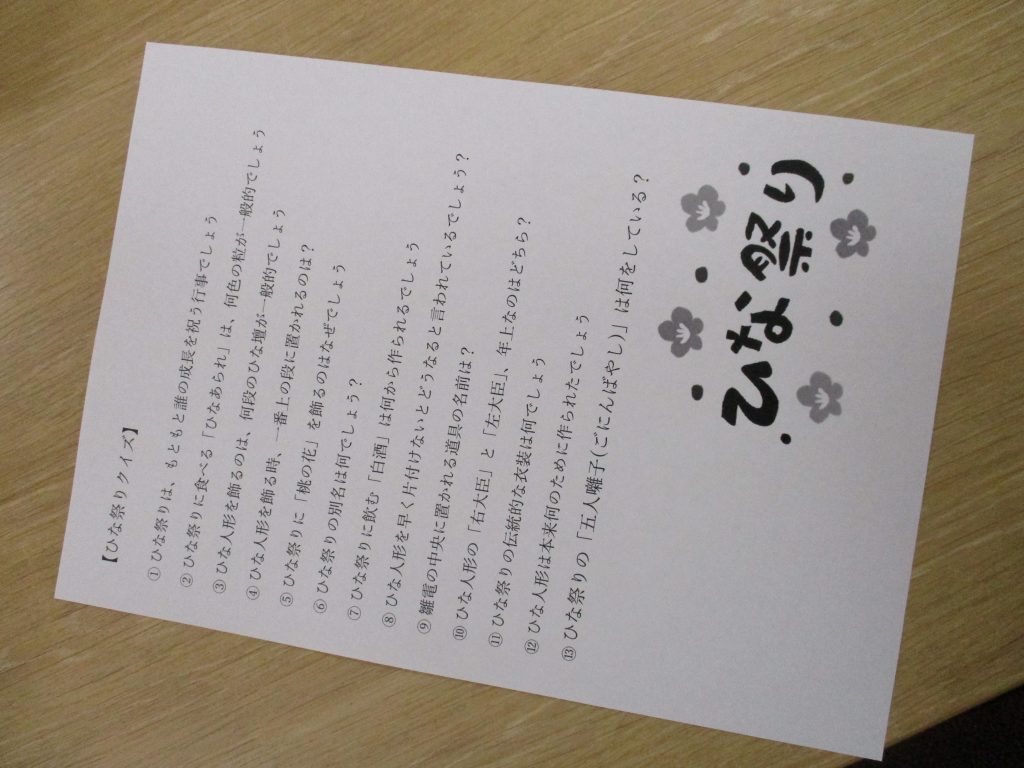 【ひな祭りクイズ】
① ひな祭りは、もともと誰の成長を祝う行事でしょう
② ひな祭りに食べる「ひなあられ」は、何色の粒が一般的でしょう
③ ひな人形を飾るのは、何段のひな壇が一般的でしょう
④ ひな人形を飾る時、一番上の段に置かれるのは？
⑤ ひな祭りに「桃の花」を飾るのはなぜでしょう
⑥ ひな祭りの別名は何でしょう？
⑦ ひな祭りに飲む「白酒」は何から作られるでしょう
⑧ ひな人形を早く片付けないとどうなると言われているでしょう？
⑨ 雛電の中央に置かれる道具の名前は？
⑩ ひな人形の「右大臣」と「左大臣」、年上なのはどちら？
⑪ ひな祭りの伝統的な衣装は何でしょう
⑫ ひな人形は本来何のために作られたでしょう
⑬ ひな祭りの「五人囃子(ごにんばやし)」は何をしている？
ひな祭り